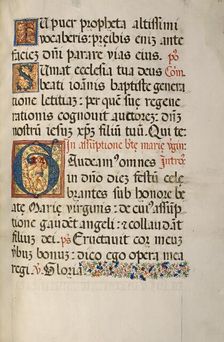 Tu puer propheta altissimi
vocaberis: preibis enim ante
faciem dñi parare vias eius. pō
Sumat ecclesia tua deus Com
beati ioānis baptiste genera
tione letitiaz: per quē sue regene
rationis cognouit auctorez: dñm
nostrū iesuz xp̄z filiū tuū: Qui te:
In assūptione btē marie v̄gin:
Gaudeamus omnes Introi:
in dño diez festū cele
brantes sub honore be
ate Marie virginis: de cui᾽ assūp
tione gaudēt angeli: ⁊ collaudāt
filium dei. pō Eructauit cor meuz
ybuz bonuz: dico ego opera mea
regi. v̄ Gloria